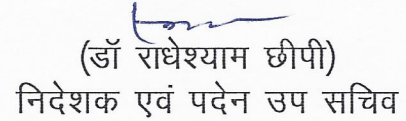 (डॉ राधेश्याम छीपी)
निदेशक एवं पदेन उप सचिव